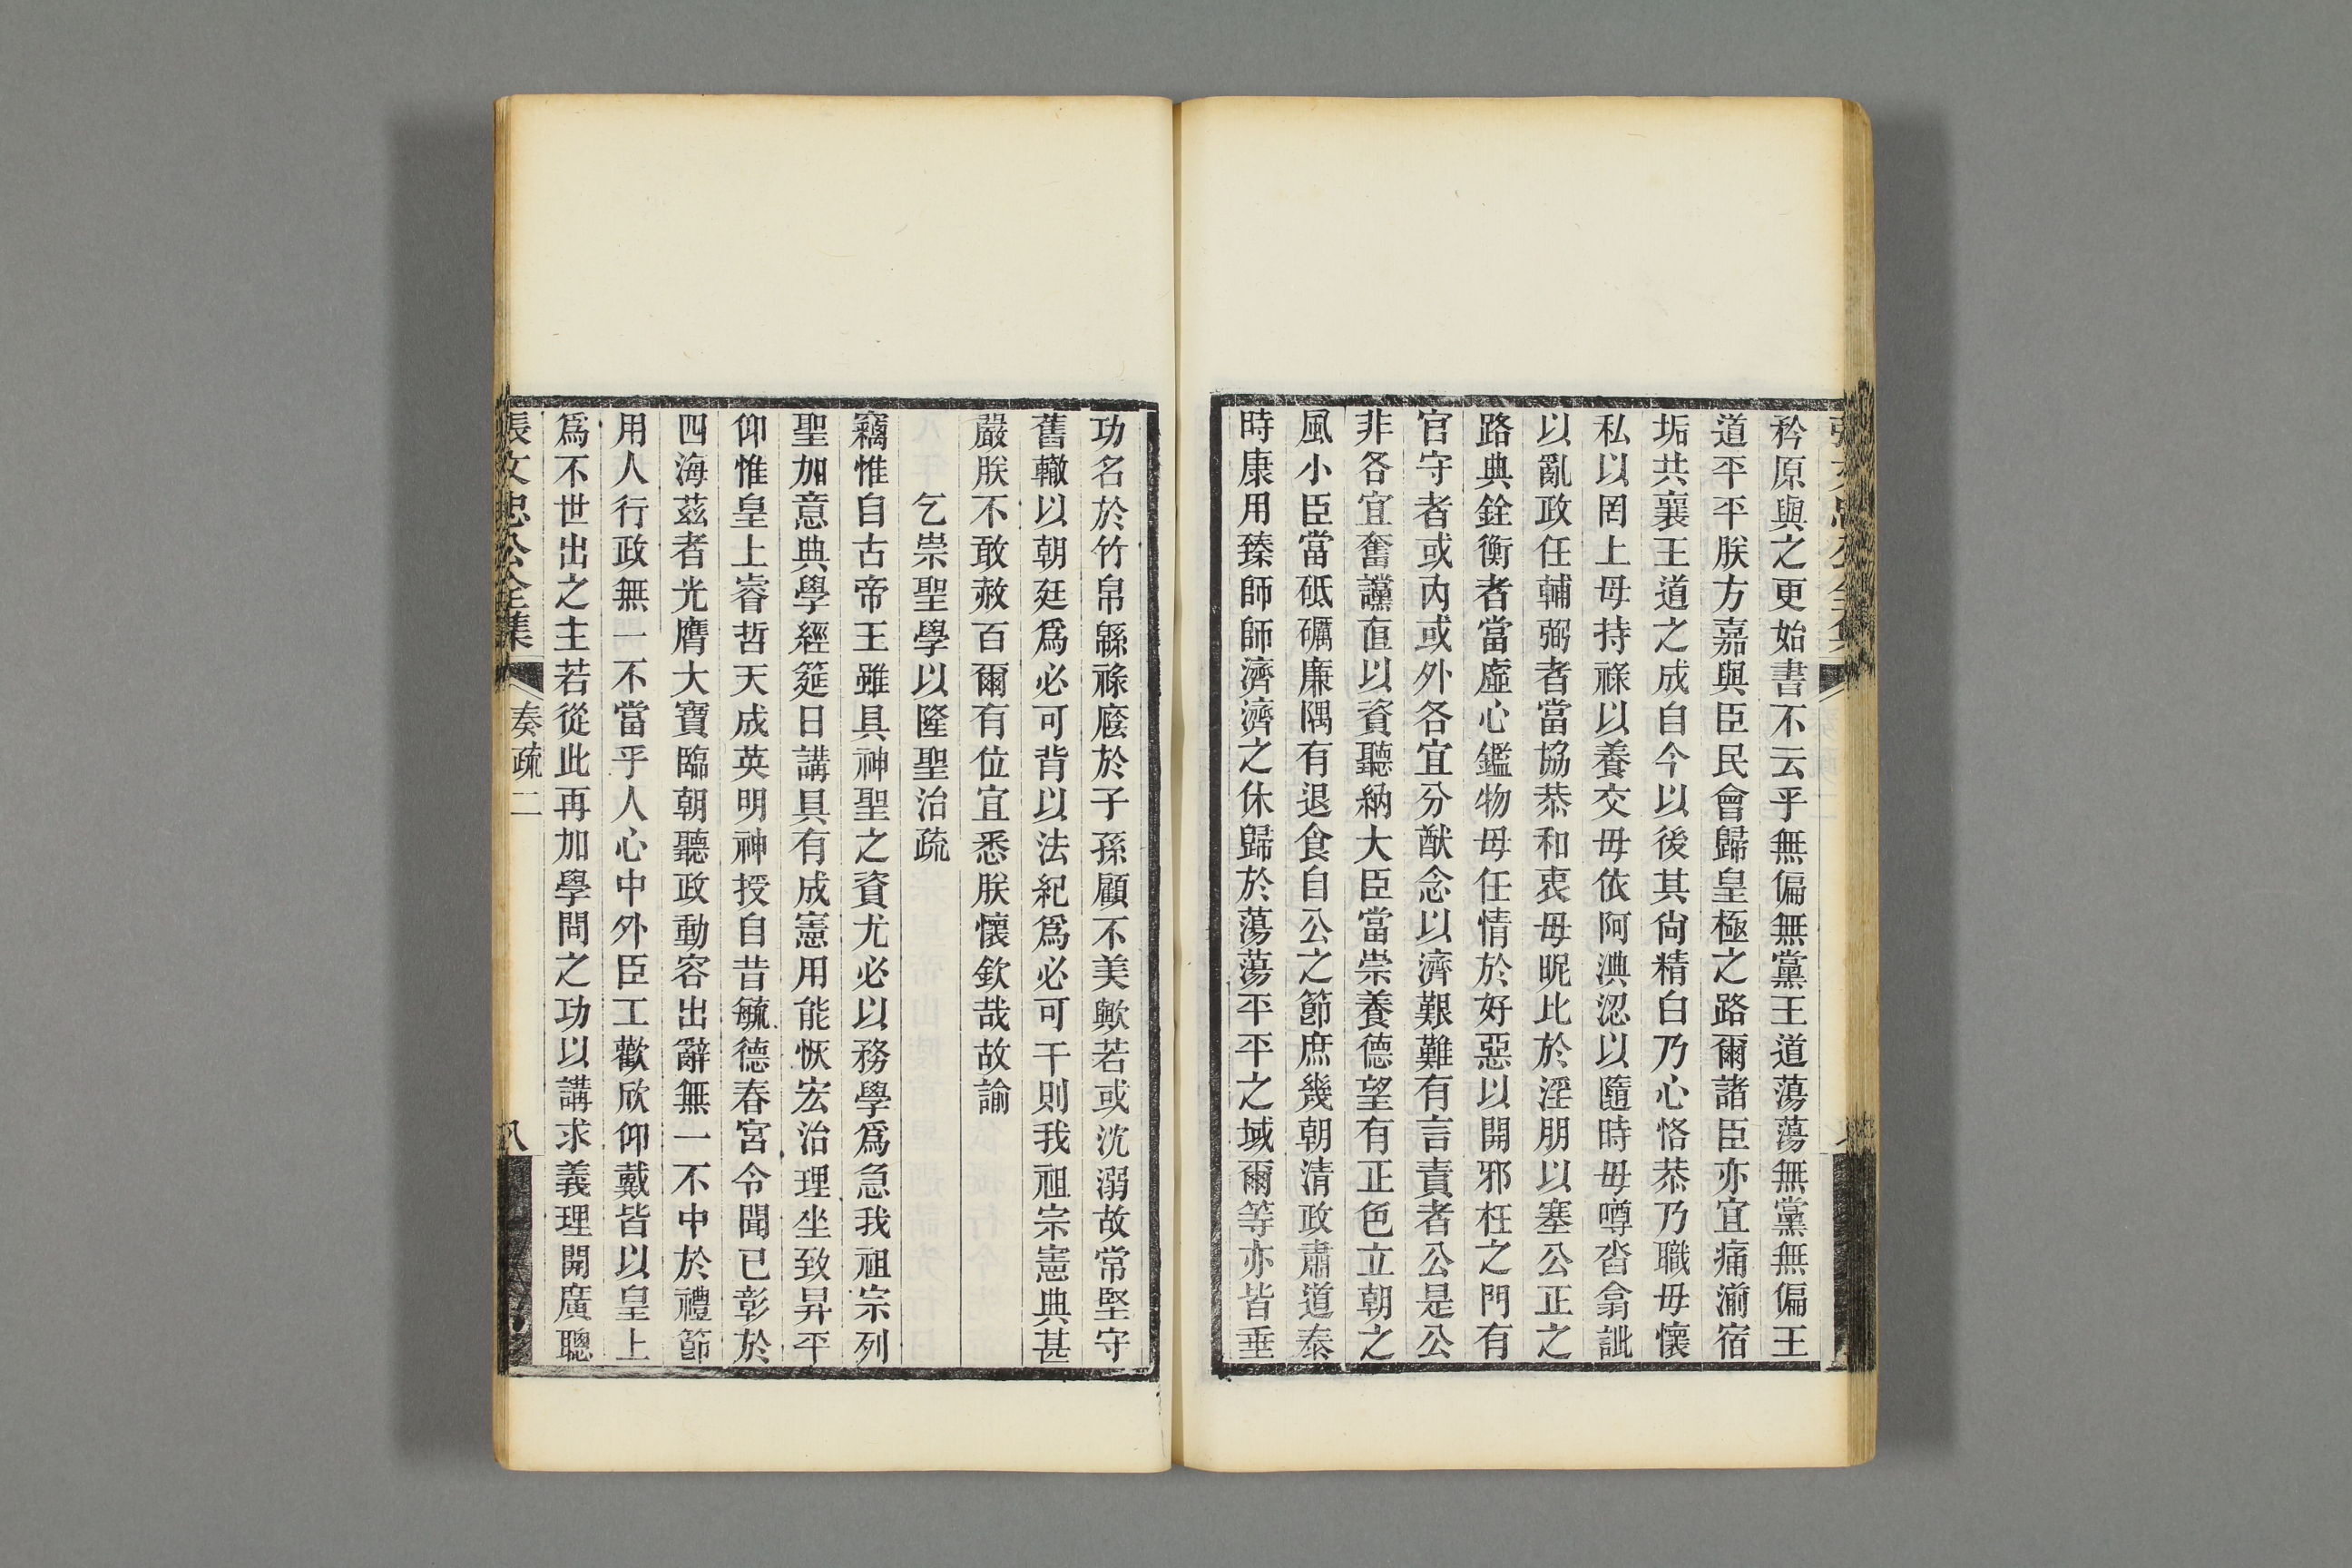 矜原與之更始書不云乎無偏無黨王道蕩蕩無黨無偏王
道平平朕方嘉與臣民會歸皇極之路爾諸臣亦宜痛湔宿
垢共襄王道之成自今以後其尙精白乃心恪恭乃職毋懷
私以罔上毋持祿以養交毋依阿淟涊以隨時毋噂沓翕訿
以亂政任輔弼者當協恭和衷毋昵比於淫朋以塞公正之
路典銓衡者當虛心鑑物毋任情於好惡以開邪枉之門有
官守者或內或外各宜分猷念以濟艱難有言責者公是公
非各宜奮讜直以資聽納大臣當崇養德望有正色立朝之
風小臣當砥礪廉隅有退食自公之節庶幾朝清政肅道泰
時康用臻師師濟濟之休歸於蕩蕩平平之域爾等亦皆垂
功名於竹帛緜祿廕於子孫顧不美歟若或沈溺故常堅守
舊轍以朝廷爲必可背以法紀爲必可干則我祖宗憲典甚
嚴朕不敢赦百爾有位宜悉朕懷欽哉故諭
乞崇聖學以隆聖治疏
竊惟自古帝王雖具神聖之資尤必以務學爲急我祖宗列
聖加意典學經筵日講具有成憲用能恢宏治理坐致昇平
仰惟皇上睿哲天成英明神授自昔毓德春宮令聞已彰於
四海茲者光膺大寶臨朝聽政動容出辭無一不中於禮節
用人行政無一不當乎人心中外臣工歡欣仰戴皆以皇上
爲不世出之主若從此再加學問之功以講求義理開廣聰
張文忠公全集 奏疏二 八